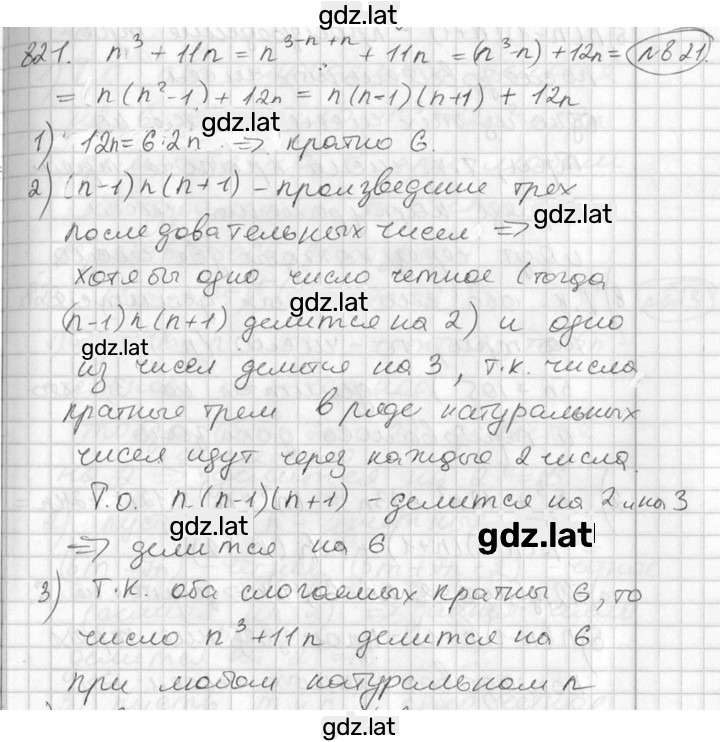 gdz.lat
821. n³ + 11n = n³ - n + n + 11n = (n³-n) + 12n = №821.
= n(n²-1) + 12n = n(n-1)(n+1) + 12n
gdz.lat
1) 12n = 6·2n ⇒ кратно 6.
2) (n-1)n(n+1) - произведение трех
gdz.lat
последовательных чисел ⇒
хотя бы одно число четное (тогда
gdz.lat
(n-1)n(n+1) делится на 2) и одно
gdz.lat
из чисел делится на 3, т.к. числа
кратные трем в ряде натуральных
чисел идут через каждые 2 числа.
Т.о. n(n-1)(n+1) - делится на 2 и на 3
gdz.lat
gdz.lat
⇒ делится на 6
3) т.к. оба слогаемых кратны 6, то
число n³+11n делится на 6
при любом натуральном n
gdz.lat